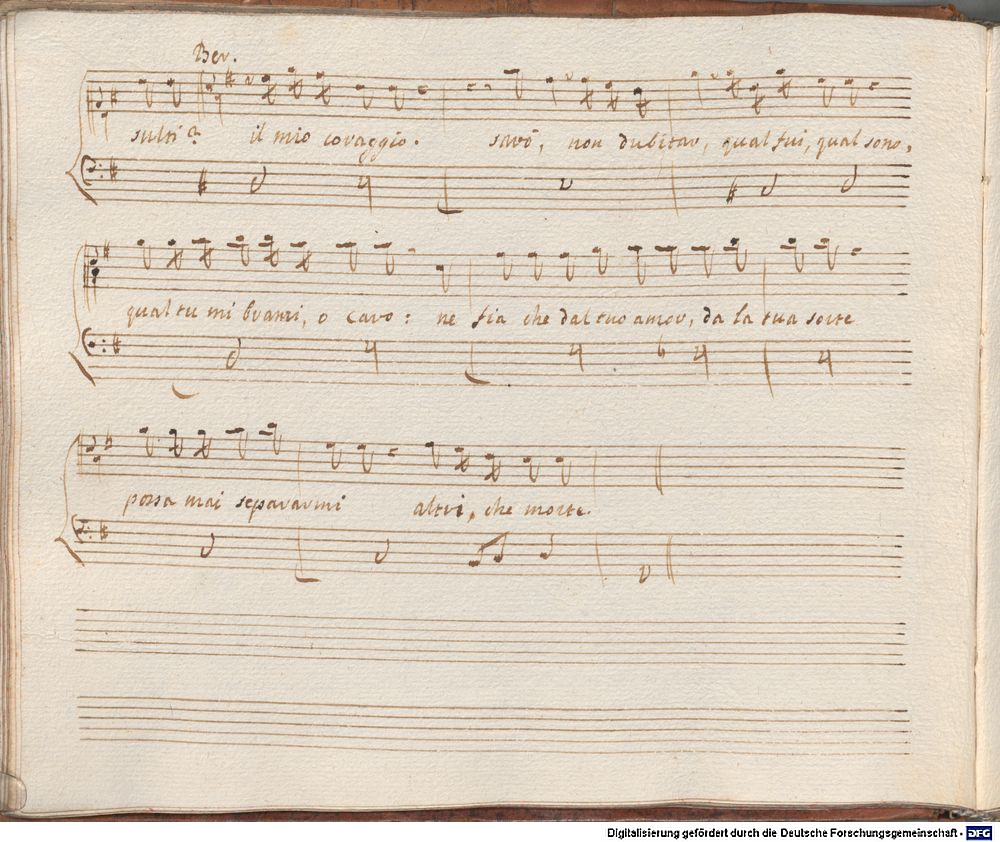 Ber.
sulti? il mio coraggio. sarò, non dubitar, qual fui, qual sono,
qual tu mi brami, o caro: ne fia che dal tuo amor, da la tua sorte
possa mai separarmi altri, che morte.
Digitalisierung gefördert durch die Deutsche Forschungsgemeinschaft - DFG